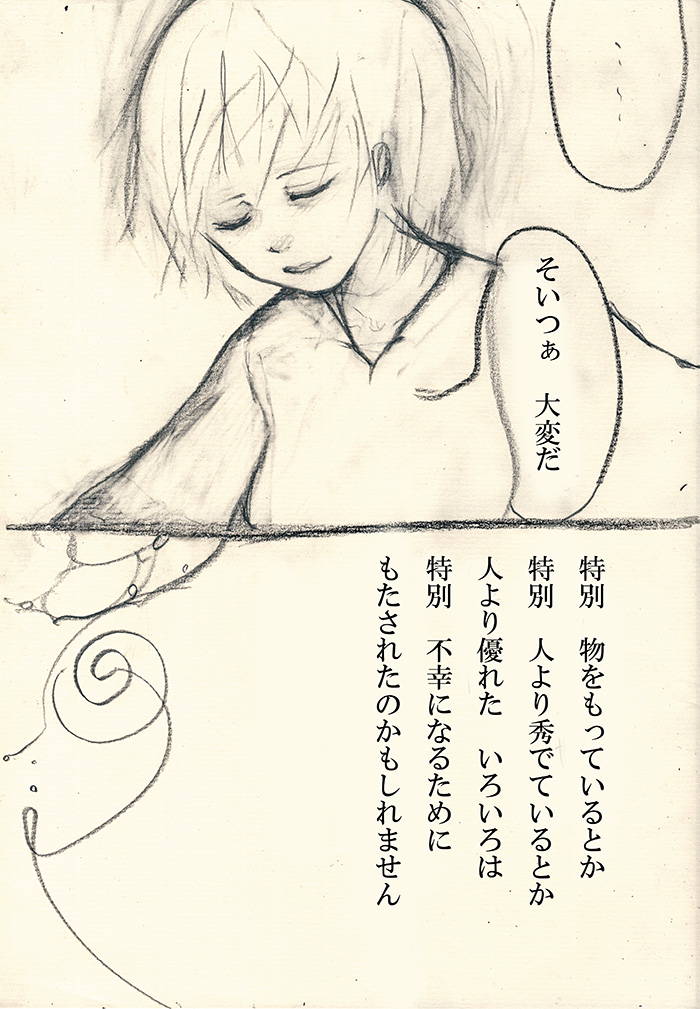 そいつぁ　大変だ
特別　物をもっているとか
特別　人より秀でているとか
人より優れた　いろいろは
特別　不幸になるために
もたされたのかもしれません